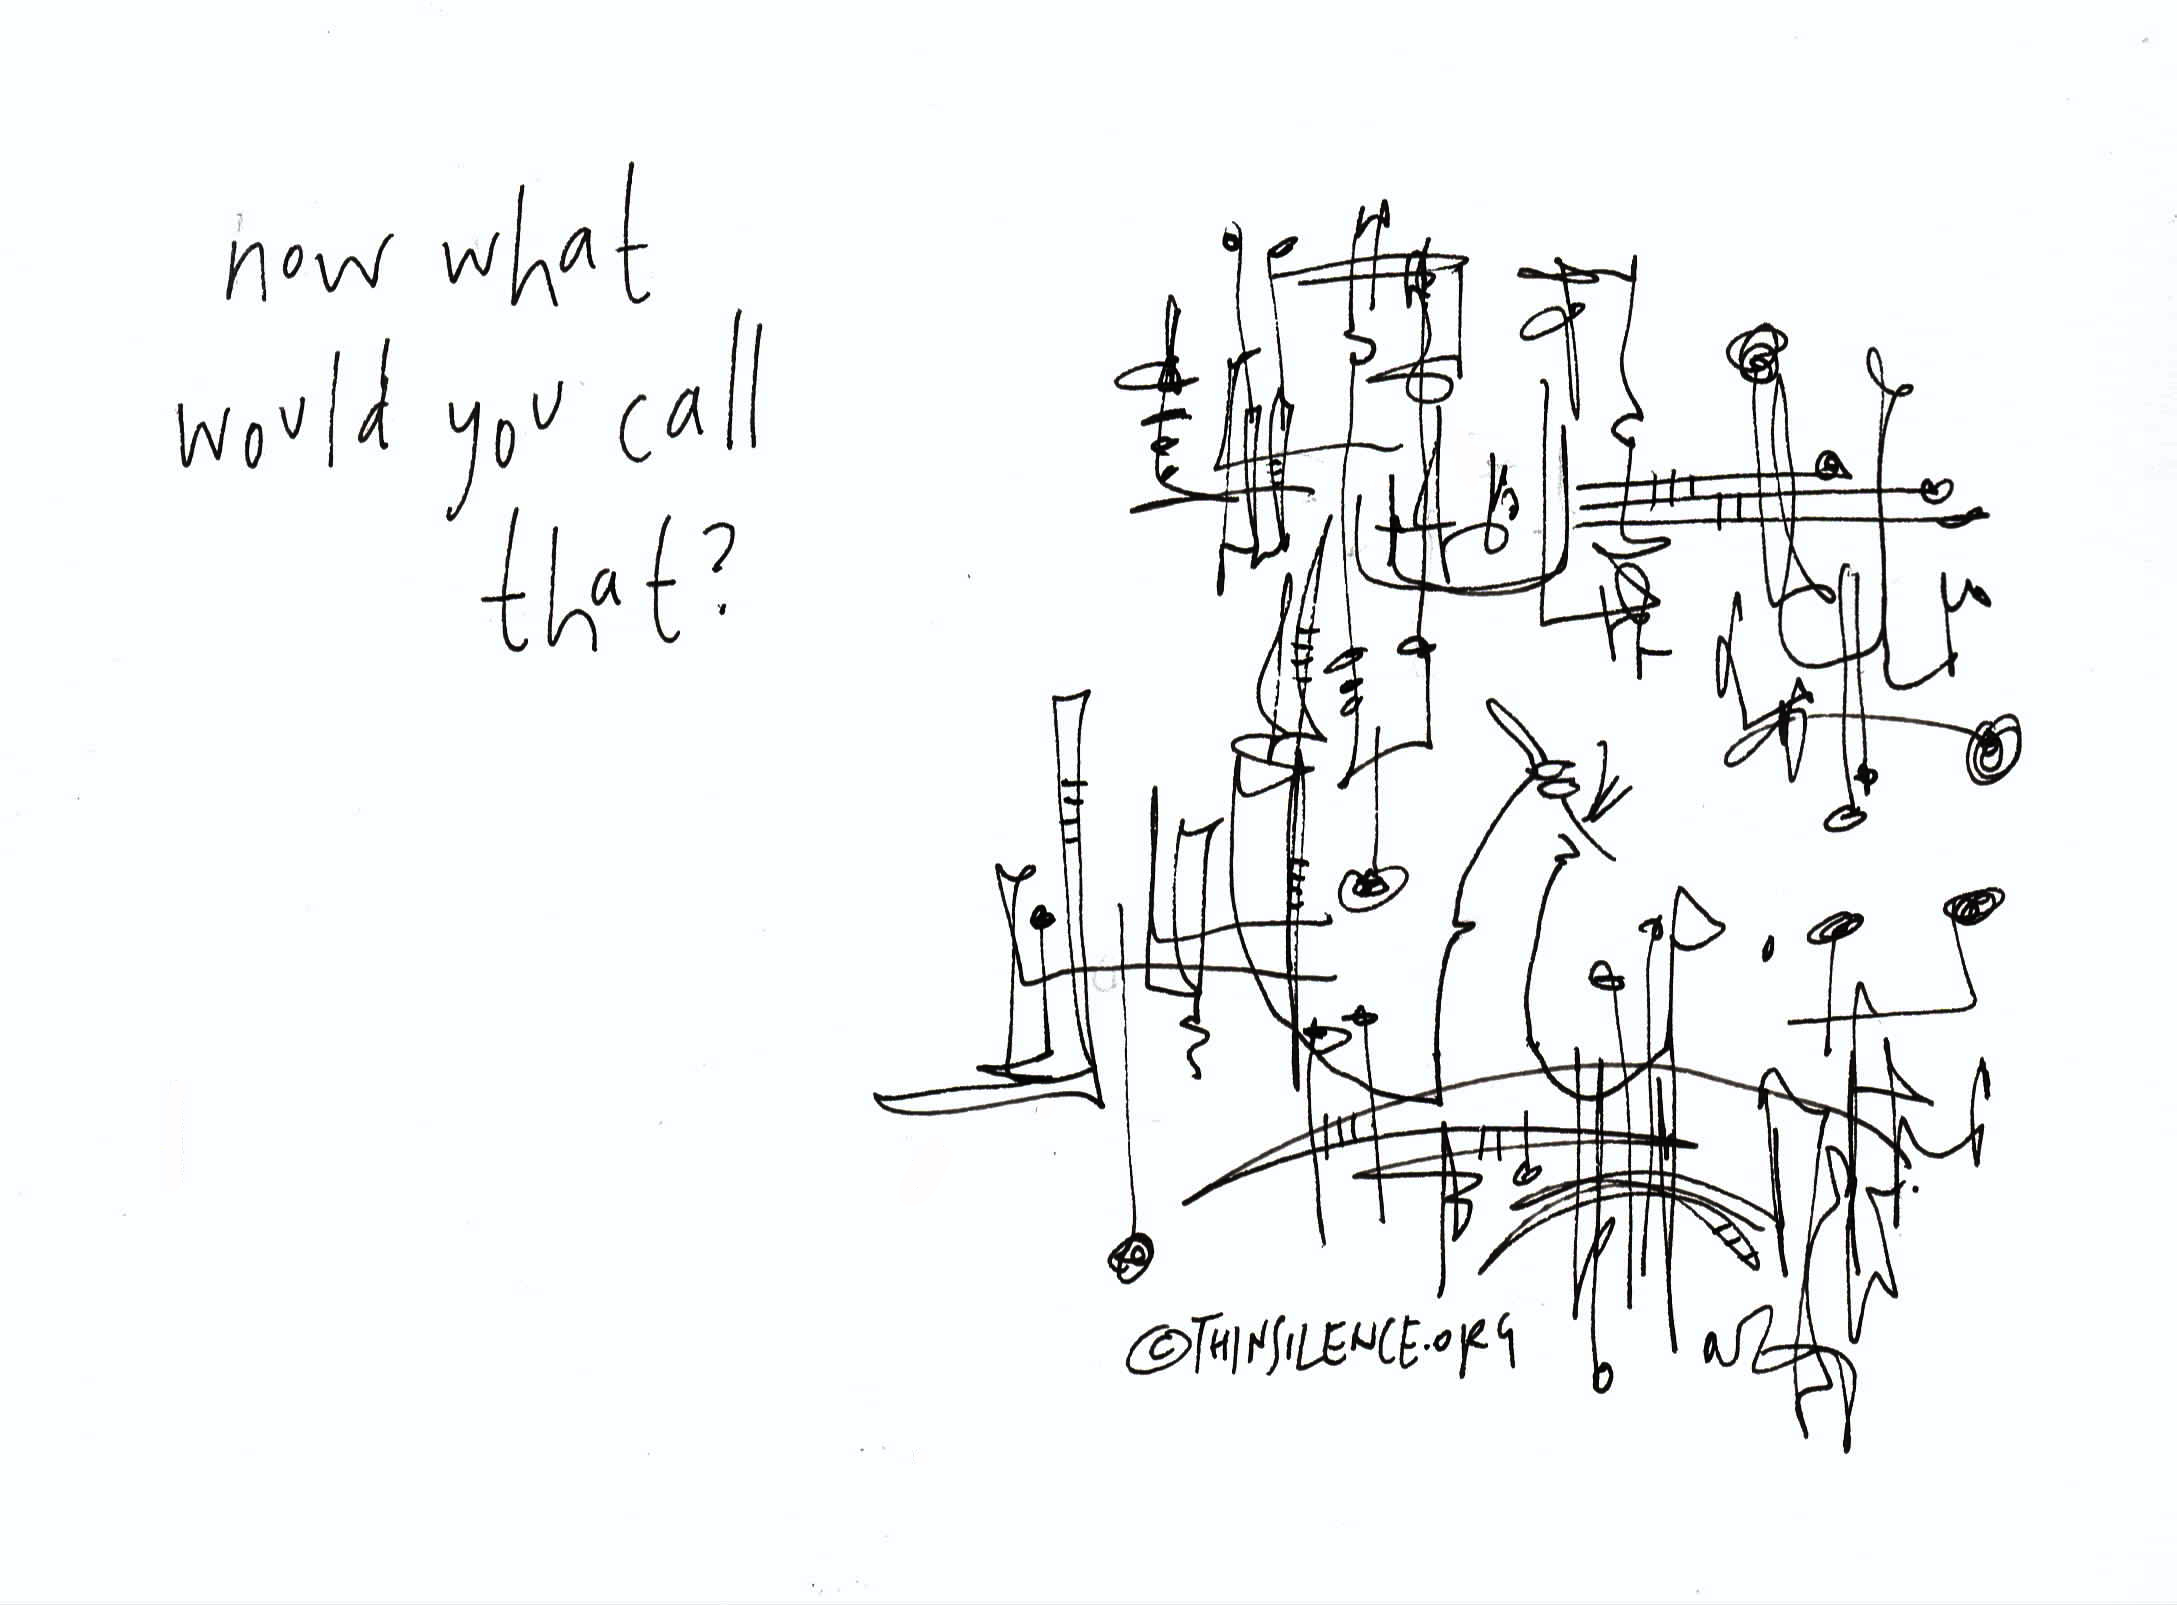 now what
would you call
that?
©THINSILENCE.ORG